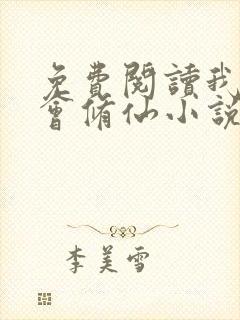 免費閱讀我
會脩仙小說
李美雪